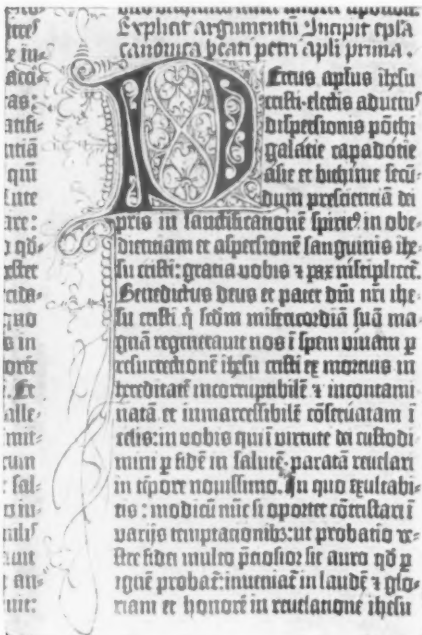 e in⸗
acā⸗
as:
atifi⸗
ntiā
qui
are:
qd⸗
cida⸗
quo
s in
. Et
alle⸗
mit⸗
cun
sal⸗
aunt
t an⸗
uit:
Explicit argumentū Incipit epla
canonica beati petri apli prima .
Petrus aplus ihesu
cristi·electis aduenis
dispersionis pōthi
galacie capadocie
asie et bithinie secū⸗
dum presciencia dei
pris in sanctificationē spirit9 in obe⸗
dientiam et aspersionē sanguinis ihe⸗
su cristi: gratia vobis ⁊ pax m̄ltiplicet.
Benedictus deus et pater dm̄ nri ihe⸗
su cristi q̄ scdm misericordiā suā ma⸗
gnā regenerauit nos ī spem viuam p
resurrectionē ihesu cristi ex mortuis in
hereditatē incorruptibilē ⁊ incontami
natā et inmarcessibilē cōseruatam ī
celis: in vobis qui ī virtute dei custodi
mini p fidē in salutē, paratā reuelari
in tpore nouissimo. In quo exultabi⸗
tis : modicū nūc si oportet cōtristari ī
varijs temptationib9: ut probatio ve⸗
stre fidei multo pciosior sit auro qd p
ignē probat: inueniat in laudē ⁊ glo⸗
riam et honorē in reuelatione ihesu